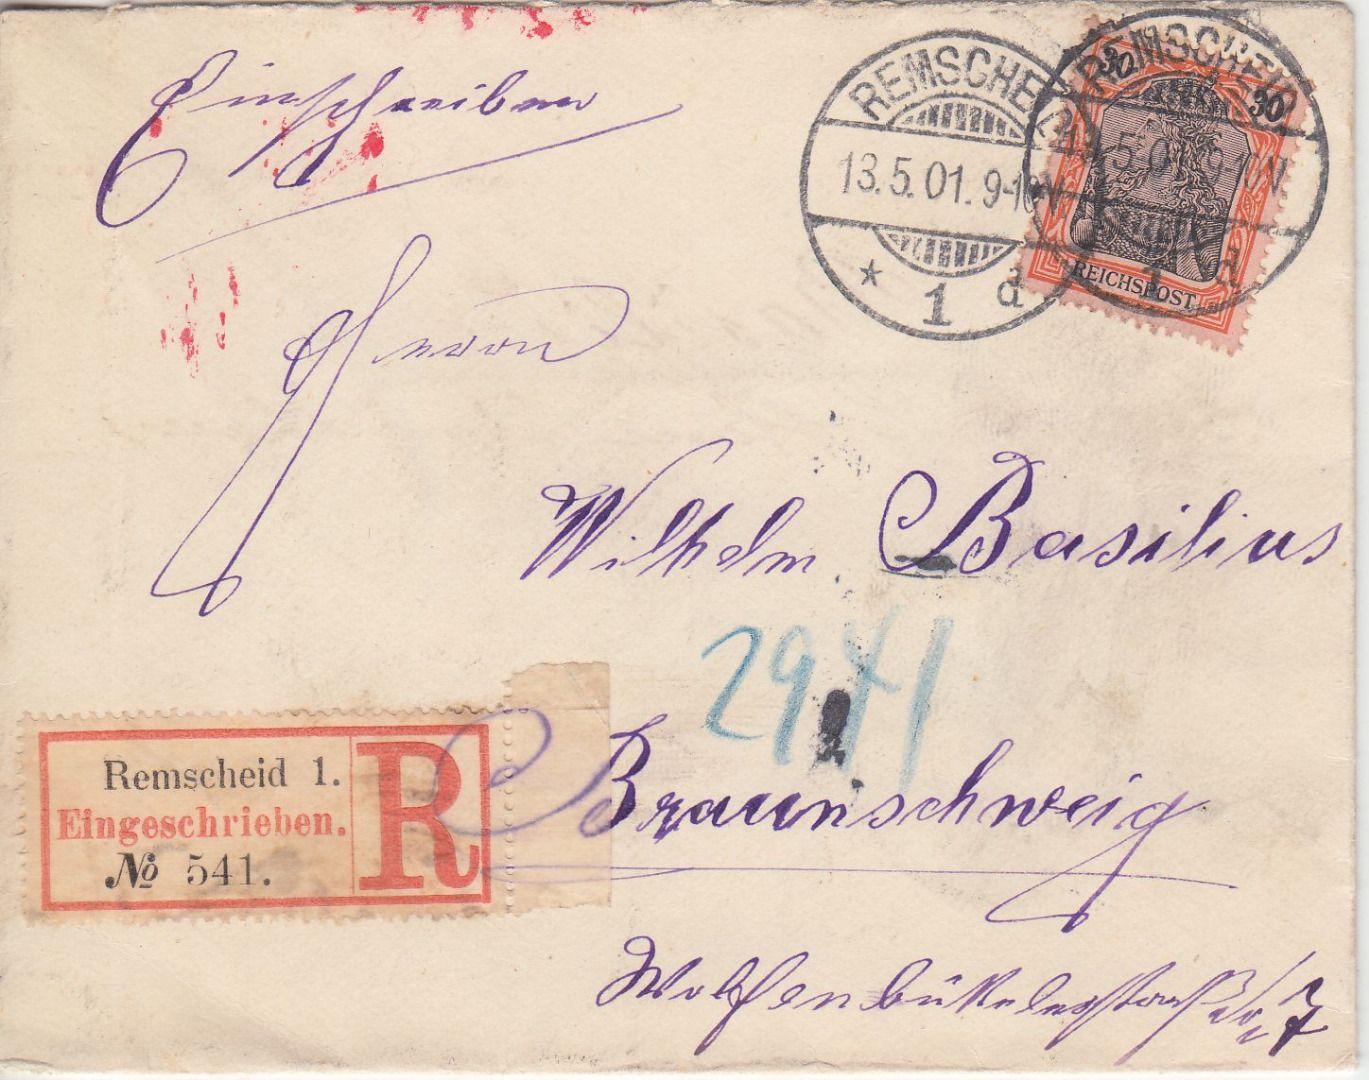 Einschreiben
REMSCHEID
13.5.01. 9-10N.
* 1 d
REMSCHEID
13.5.01. 9-10N.
1 d
30 30
REICHSPOST
Herrn
Wilhelm Basilius
2941
Remscheid 1.
Eingeschrieben.
№ 541.
R
Braunschweig
Wolfenbüttelerstraße